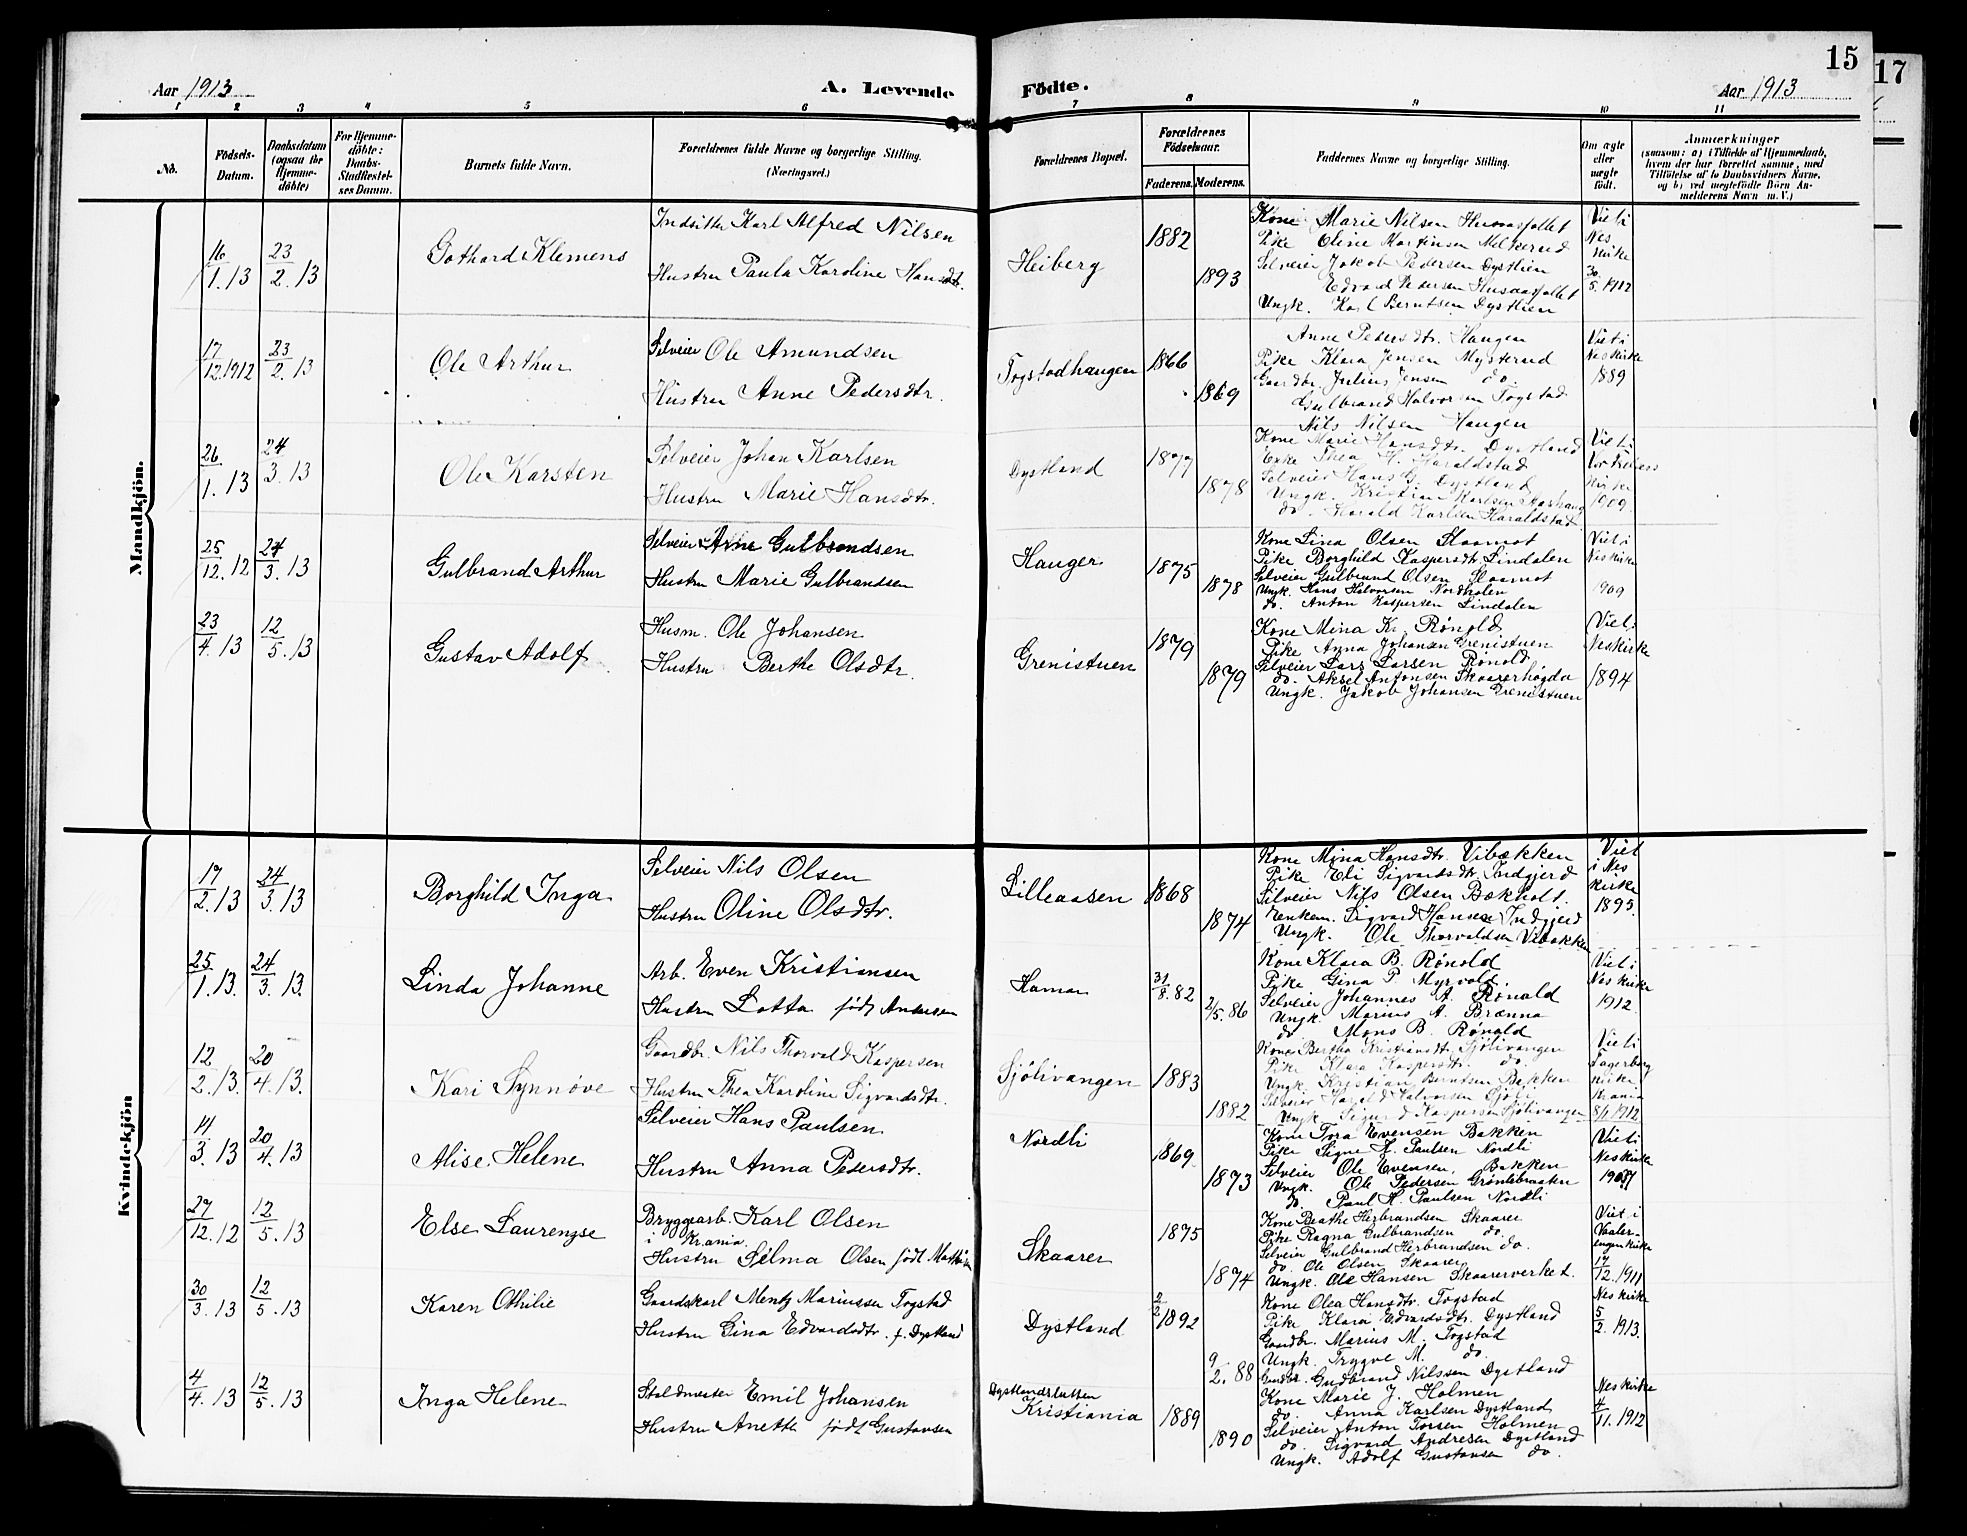 15
17
Aar 1913
A. Levende
Födte.
Aar 1913
1 2 3 4 5 6 7 8 9 10 11
No.
Födsels-Datum.
Daabsdatum (ogsaa for Hjemme-döbte)
For Hjemme-döbte: Daabs-Stadfæstel-ses Datum.
Barnets fulde Navn.
Forældrenes fulde Navne og borgerlige Stilling.
(Næringsvei.)
Forældrenes Bopæl.
Forældrenes Födselsaar.
Faderens. Moderens.
Faddernes Navne og borgerlige Stilling.
Om ægte eller uægte födt.
Anmærkninger
(saasom: a) i Tilfælde af Hjemmedaab,
hvem der har forrettet samme, med
Tilföielse af to Daabsvidners Navne,
og b) ved uægtefödte Börn An-
melderens Navn m. V.)
Mandkjön.
16/1.13 23/2.13
Gothard Klemens
Karl Alfred Nilsen
Hustru Paula Karoline Hansdtr.
Heiberg
1882
1893
Kone Marie Nilsen Husaasfallet
Pike Eline Martinsen Melkerud
Selveier Jakob Pedersen Dystlien
Edvard Pedersen Husaasfallet
Ungk. Karl Berntsen Dystlien
Viet i
Nes
kirke
30/5.1912
17/12.1912 23/2.13
Ole Arthur
Selveier Ole Amundsen
Hustru Anne Pedersdtr.
Togstadhaugen
1866
1869
Anne Pedersdtr. Haugen
Pike Klara Jensen Mysterud
Gaardbr. Julius Jensen do.
Gulbrand Halvorsen Togstad
Nils Nilsen Haugen
Viet i
Nes kirke
1889
26/1.13 24/3.13
Ole Karsten
Selveier Johan Karlsen
Hustru Marie Hansdtr.
Dystland
1877
1878
Kone Marie Hansdtr. Dystland
Enke Thea H. Haraldstad
Selveier Hans G. Dystland
Ungk. Kristian Karlsen
do. Harald Karlsen Haraldstad
Viet i
kirke
1909.
25/12.12 24/3.13
Gulbrand Arthur
Selveier Arne Gulbrandsen
Hustru Marie Gulbrandsen
Hauger
1875
1878
Kone Lina Olsen Slaamot
Pike Borghild Kaspersdtr. Lindalen
Selveier Gulbrand Olsen Slaamot
Ungk. Hans Halvorsen Nordholen
do. Anton Kaspersen Lindalen
Viet i
Nes kirke
1909
23/4.13 12/5.13
Gustav Adolf
Husm. Ole Johansen
Hustru Berthe Olsdtr.
Grenistuen
1879
1879
Kone Mina Kr. Rönold
Pike Anna Johansen Grenistuen
Selveier Lars Larsen Rönold
do. Aksel Antonsen Skaarerhögda
Ungk. Jakob Johansen Grenistuen
Viet i
Nes kirke
1894
Kvindekjön
17/2.13 24/3.13
Borghild Inga
Selveier Nils Olsen
Hustru Oline Olsdtr.
Lilleaasen
1868
1874
Kone Mina Hansdtr. Vibækken
Pike Eli Sigvartsdtr. Indgjerd
Selveier Nils Olsen Bækholt.
Enkem. Sigvard Hansen Indgjerd
Ungk. Ole Thorvaldsen Vibækken
Viet
i Nes
kirke
1895.
25/1.13. 24/3.13.
Linda Johanne
Arb. Even Kristiansen
Hustru Lotta född Andersen
Hamar
31/8.82
2/5.86
Kone Klara B. Rönold
Pike Gina P. Myrvold
Selveier Johannes A. Rönald
Ungk. Marius A. Brænna
do Mons B. Rönold
Viet i
Nes kirke
1912.
12/2.13. 20/4.13.
Kari Synnöve
Gaardbr. Nils Thorvald Kaspersen
Hustru Thea Karoline Sigvardsdtr.
Sjölivangen
1883
1882
Kone Bertha Kristiansdtr. Sjölivangen
Pike Klara Kaspersdtr. do.
Ungk. Kristian Berntsen Bakken
Selveier Harald Halvorsen Sjöli
Ungk. Sigurd Kaspersen Sjölivangen
Viet i
Fagerborg
kirke
Krania
8/1.1912
14/3.13 20/4.13
Alise Helene
Selveier Hans Paulsen
Hustru Anna Pedersdtr.
Nordli
1869
1873
Kone Tora Evensen Bakken
Pike Signe H. Paulsen Nordli
Selveier Ole Evensen, Bakken
Ungk. Ole Pedersen Grönlibraaten
do. Paul H. Paulsen Nordli
Viet i
Nes kirke
27/12.12 12/5.13
Else Laurengse
Bryggearb. Karl Olsen
i Kr.ania.
Hustru Selma Olsen född
Skaarer
1875
1874
Kone Beathe Herbrandsen Skaarer
Pike Ragna Gulbrandsen do.
Selveier Gulbrand Herbrandsen do.
do. Ole Olsen Skaarer
Ungk. Ole Hansen Skaarerverket.
Viet i
Vaaler-
engen kirke
17/12.1911
30/3.13 12/5.13
Karen Othilie
Gaardskarl Mentz Mariussen Togstad
Hustru Gina Edvardsdtr. f. Dystland
Dystland
2/2 1892
9/2.88
Kone Olea Hansdtr. Togstad
Pike Klara Edvardsdtr. Dystland
Gaardbr. Marius M. Togstad
Ungk. Trygve M. do.
Gaardbr. Gudbrand Nilssen Dystland
Nes kirke
5/2.1913.
4/4.13 12/5.13
Inga Helene
Staldmester Emil Johansen
Hustru Anette född Gustavsen
Dystlandsletten
Kristiania
1889
1890
Kone Marie J. Holmen
do. Anna Karlsen Dystland
Selveier Anton Torsen Holmen
do. Sigvard Andresen Dystland
Ungk. Adolf Gustavsen do.
Nes kirke
4/11.1912